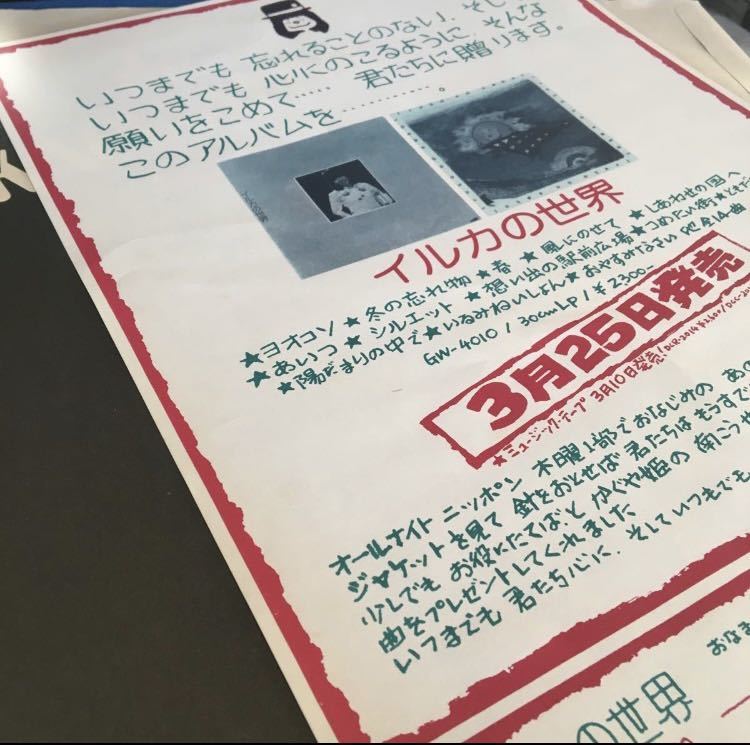 いつまでも 忘れることのない、そし
いつまでも 心にのこるように、そんな
願いをこめて…… 君たちに贈ります。
このアルバムを…………。
イルカの世界
★ヨオコソ ★冬の忘れ物 ★春 ★風にのせて ★しあわせの国へ
★あいつ ★シルエット ★想い出の駅前広場 ★つめたい街 ★ともだ
★陽だまりの中で ★いるみねいしょん ★おやすみなさい 他全14曲
GW-4010 / 30cmLP / ¥2300
3月25日発売
★ミュージック・テープ 3月10日発売!
オールナイト ニッポン 木曜1部でおなじみの あの
ジャケットを見て 針をおとせば 君たちはもうすで
少しでも お役にたてば、と かぐや姫の 南こうせ
曲をプレゼントしてくれました
いつまでも 君たち心に、そして いつまでも
の世界
おなま